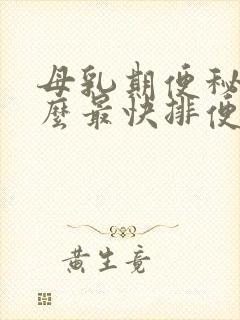 母乳期便秘
麼最快排便
黄生竟